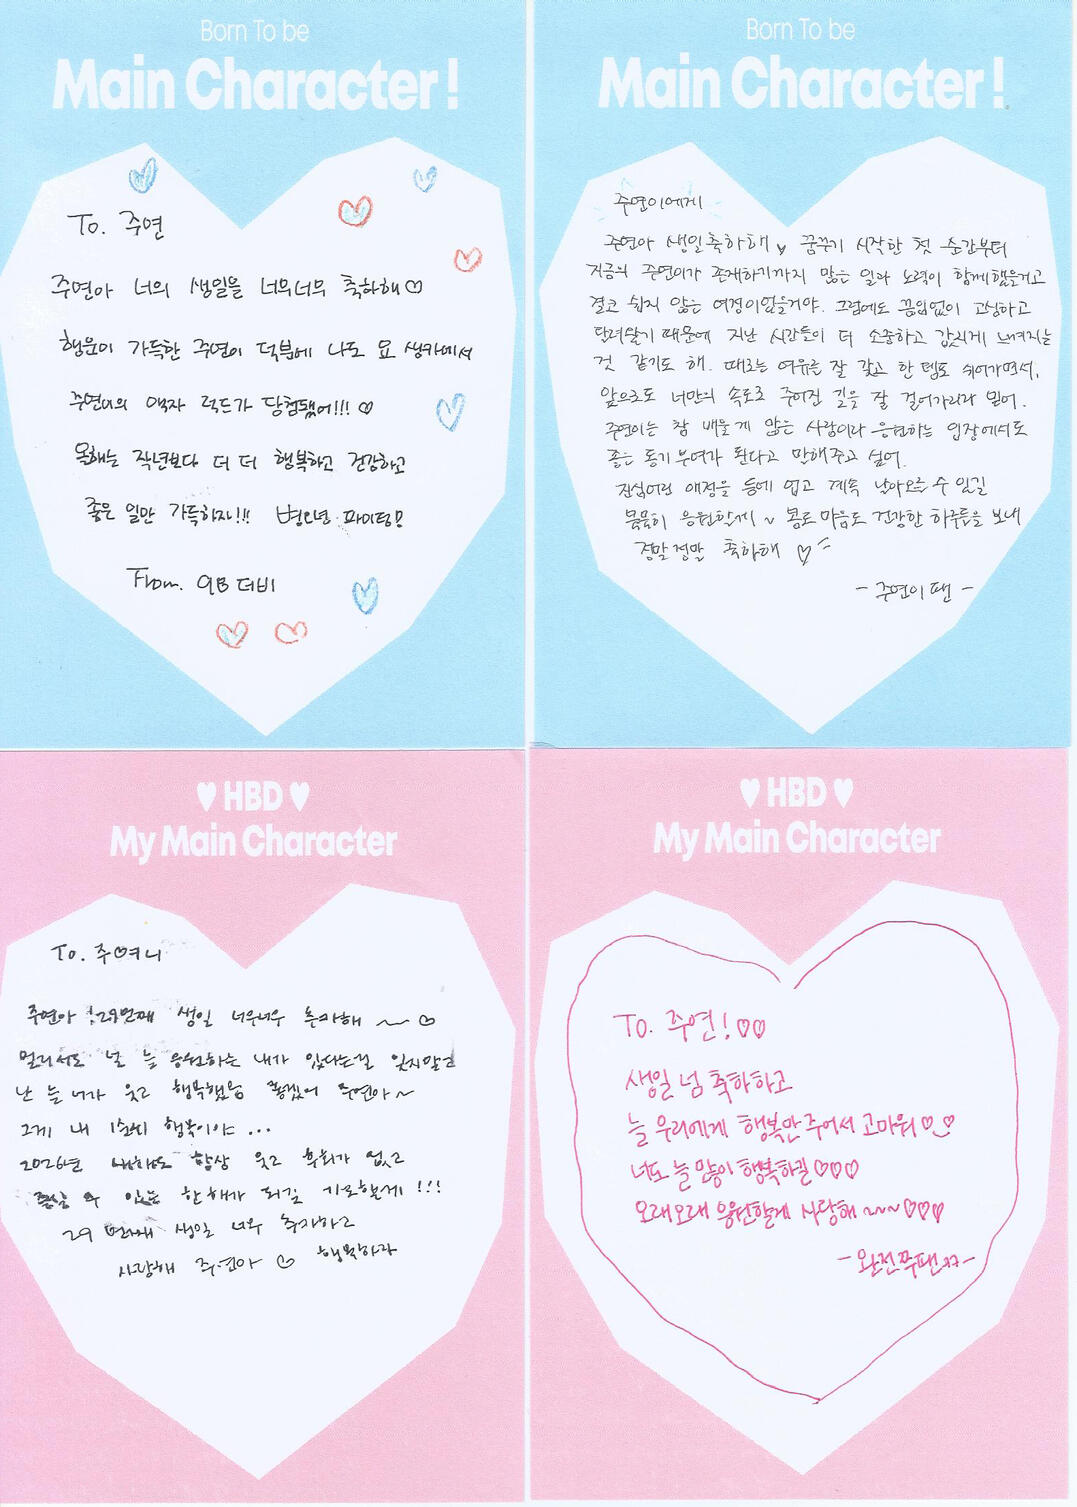 Born To be
Main Character!
To. 주연
주연아 너의 생일을 너무너무 축하해♡
행운이 가득한 주연이 덕분에 나도 요 생카에서
주연이의 액자 럭드가 당첨됐어!!! ♡
올해는 작년보다 더 더 행복하고 건강하고
좋은 일만 가득하자!!! 병오년 파이팅
From. 더비
Born To be
Main Character!
주연이에게
주연아 생일축하해 꿈꾸기 시작한 첫 순간부터
지금의 주연이가 존재하기까지 많은 일과 노력이 함께했을거고
결코 쉽지 않은 여정이었을거야. 그럼에도 끊임없이 고심하고
달려왔기 때문에 지난 시간들이 더 소중하고 값지게 느껴지는
것 같기도 해. 때로는 여유를 잘 갖고 한 템포 쉬어가면서,
앞으로도 너만의 속도로 주어진 길을 잘 걸어가리라 믿어.
주연이는 참 배울게 많은 사람이라 응원하는 입장에서도
좋은 동기부여가 된다고 말해주고 싶어.
진심어린 애정을 등에 업고 계속 날아오를 수 있길
묵묵히 응원할게~ 몸도 마음도 건강한 하루들을 보내
정말정말 축하해 ♡
- 주연이 팬 -
♥ HBD ♥
My Main Character
To. 주여니
주연아 29번째 생일 너무너무 추카해 ~ ♡
멀리서도 널 늘 응원하는 내가 있다는걸 잊지말고
난 늘 너가 웃고 행복했음 좋겠어 주연아~
그게 내 1순위 행복이야...
2026년 항상 웃고 후회가 없고
수 있는 한해가 되길 기도할게!!!
29 번째 생일 너무 추카하고
사랑해 주연아 ♡ 행복하자
♥ HBD ♥
My Main Character
To. 주연!♡♡
생일 넘 축하하고
늘 우리에게 행복만 주어서 고마워♡♡
너도 늘 많이 행복하길♡♡♡
오래오래 응원할게 사랑해~~~♡♡♡
-완전쭈팬ㅊㅊ-